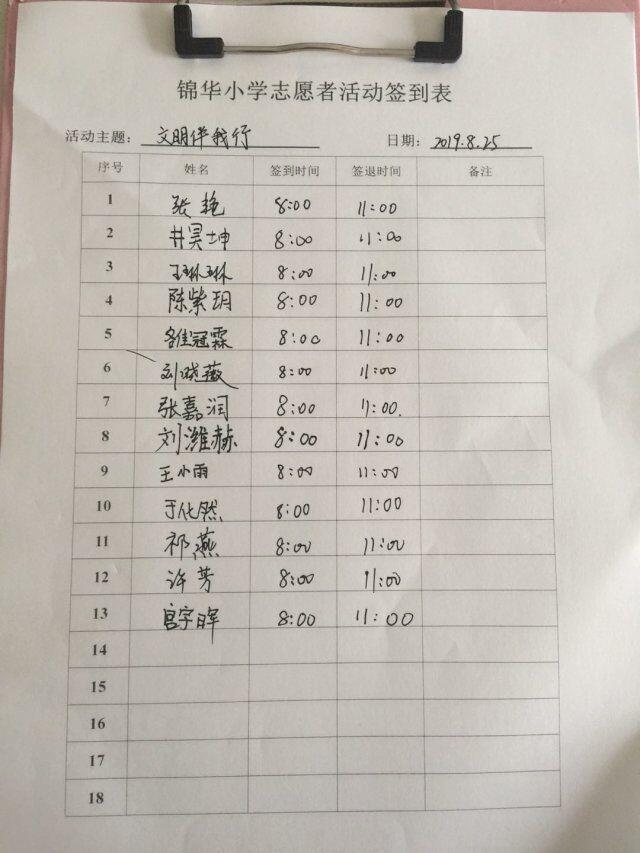 锦华小学志愿者活动签到表
活动主题: 文明伴我行 日期: 2019.8.25
序号 姓名 签到时间 签退时间 备注
1 张艳 8:00 11:00
2 井昊坤 8:00 11:00
3 王琳琳 8:00 11:00
4 陈紫玥 8:00 11:00
5 冠霖 8:00 11:00
6 刘晓薇 8:00 11:00
7 张嘉润 8:00 11:00.
8 刘潍赫 8:00 11:00
9 王小雨 8:00 11:00
10 于化然 8:00 11:00
11 祁燕 8:00 11:00
12 许芳 8:00 11:00
13 宫宇晖 8:00 11:00
14
15
16
17
18